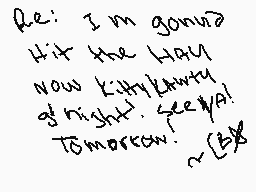 Re: I m gonna
Hit the HAY
NOW KittyKAwty
g'night! see yA!
Tomorrow!